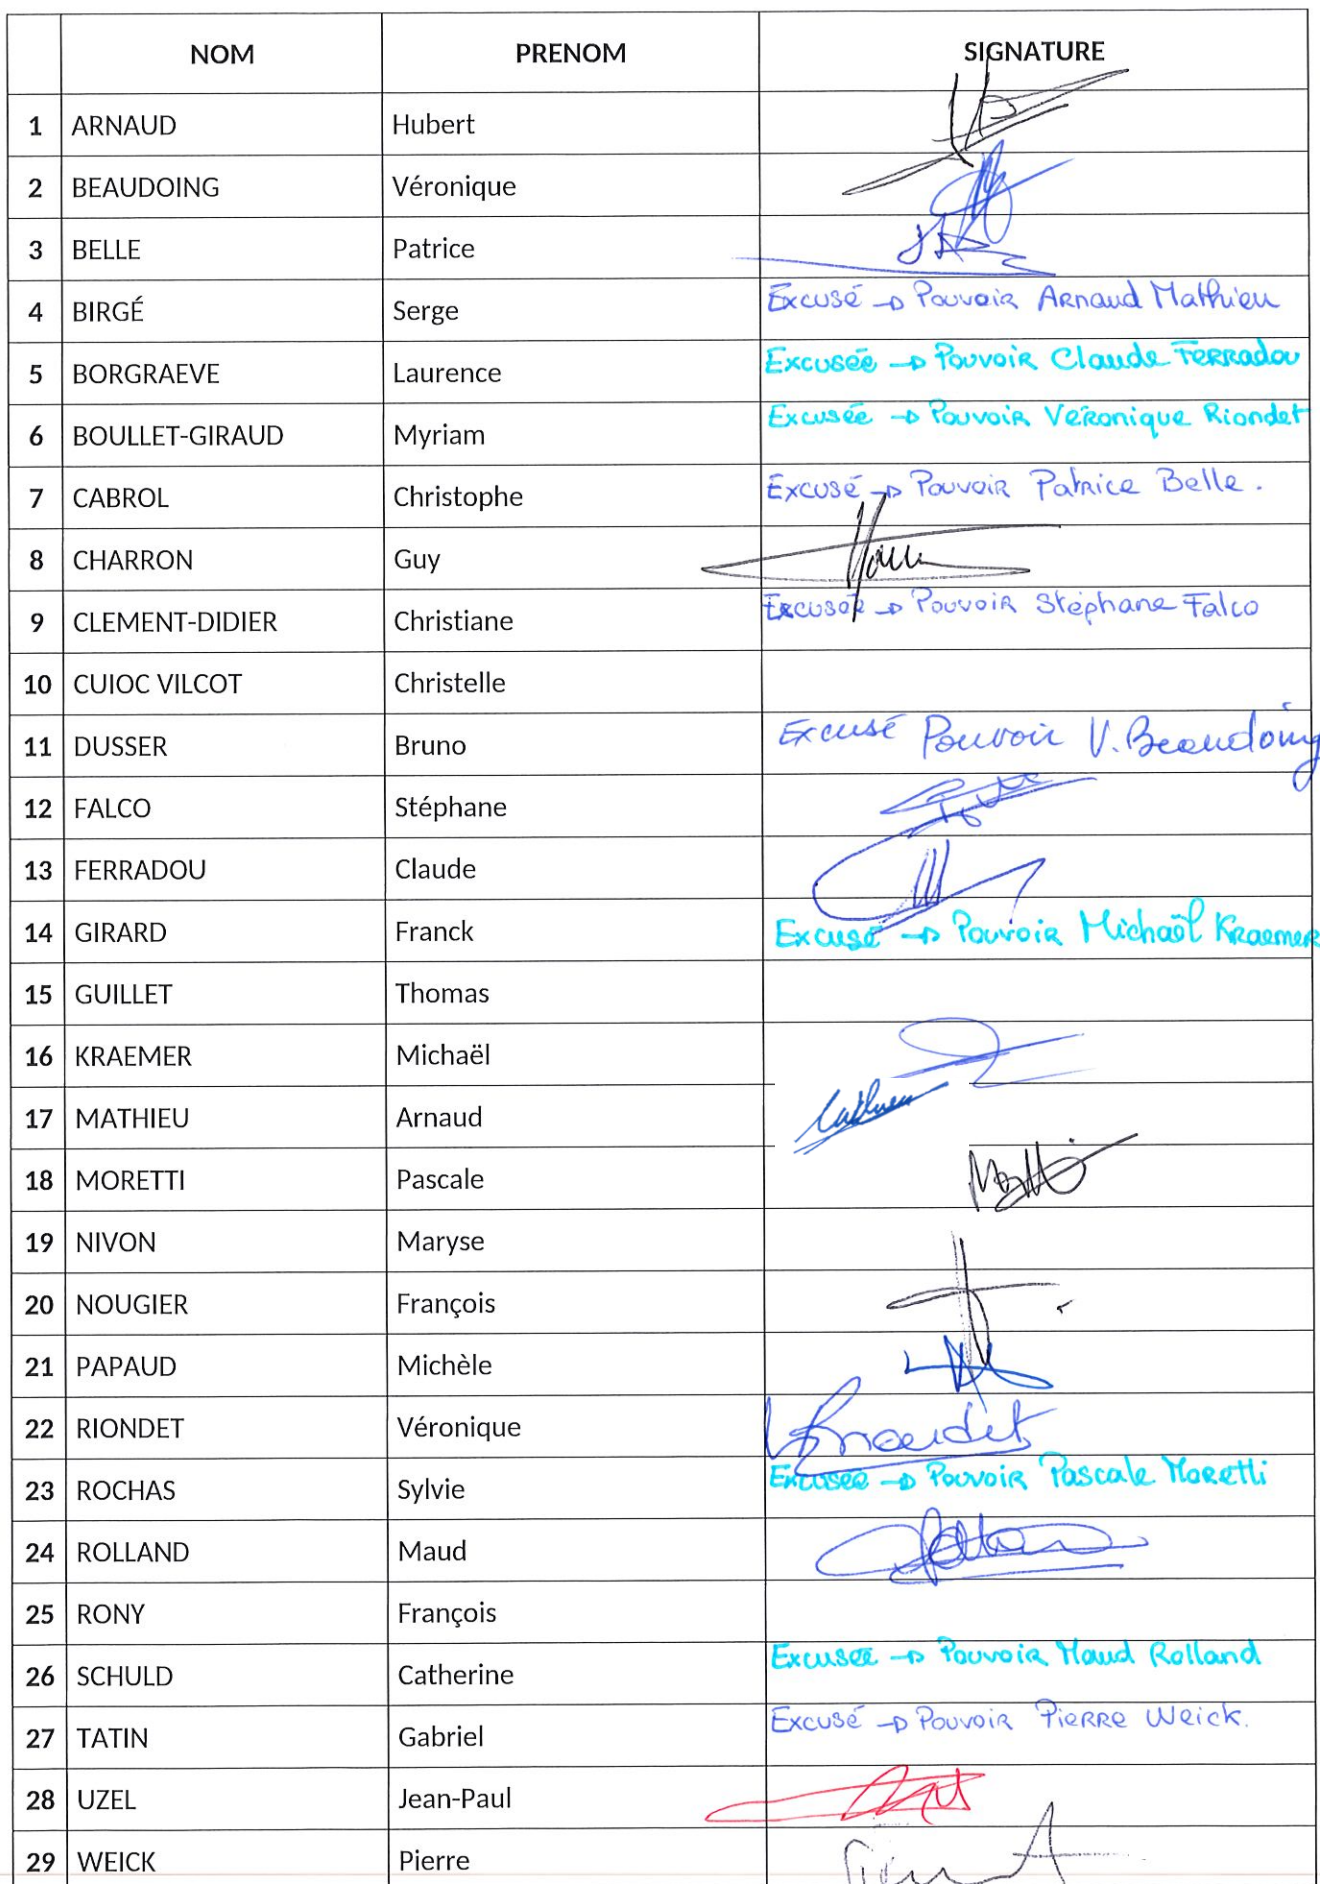 NOM PRENOM SIGNATURE
1 ARNAUD Hubert
2 BEAUDOING Véronique
3 BELLE Patrice
4 BIRGÉ Serge Excusé → Pouvoir Arnaud Mathieu
5 BORGRAEVE Laurence Excusée → Pouvoir Claude Ferradou
6 BOULLET-GIRAUD Myriam Excusée → Pouvoir Véronique Riondet
7 CABROL Christophe Excusé → Pouvoir Patrice Belle.
8 CHARRON Guy
9 CLEMENT-DIDIER Christiane Excusée → Pouvoir Stéphane Falco
10 CUIOC VILCOT Christelle
11 DUSSER Bruno Excusé Pouvoir V. Beaudoing
12 FALCO Stéphane
13 FERRADOU Claude
14 GIRARD Franck Excusé → Pouvoir Michaël Kraemer
15 GUILLET Thomas
16 KRAEMER Michaël
17 MATHIEU Arnaud
18 MORETTI Pascale
19 NIVON Maryse
20 NOUGIER François
21 PAPAUD Michèle
22 RIONDET Véronique
23 ROCHAS Sylvie Excusée → Pouvoir Pascale Moretti
24 ROLLAND Maud
25 RONY François
26 SCHULD Catherine Excusée → Pouvoir Maud Rolland
27 TATIN Gabriel Excusé → Pouvoir Pierre Weick.
28 UZEL Jean-Paul
29 WEICK Pierre